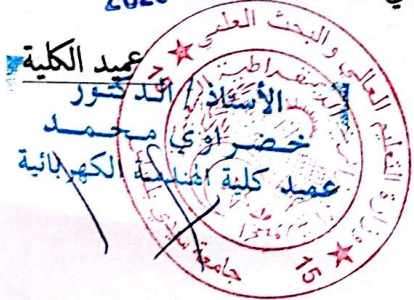 عميد الكلية
الأستاذ / الدكتور
خضراوي محمد
عميد كلية الهندسة الكهربائية
وزارة التعليم العالي والبحث العلمي
جامعة
15